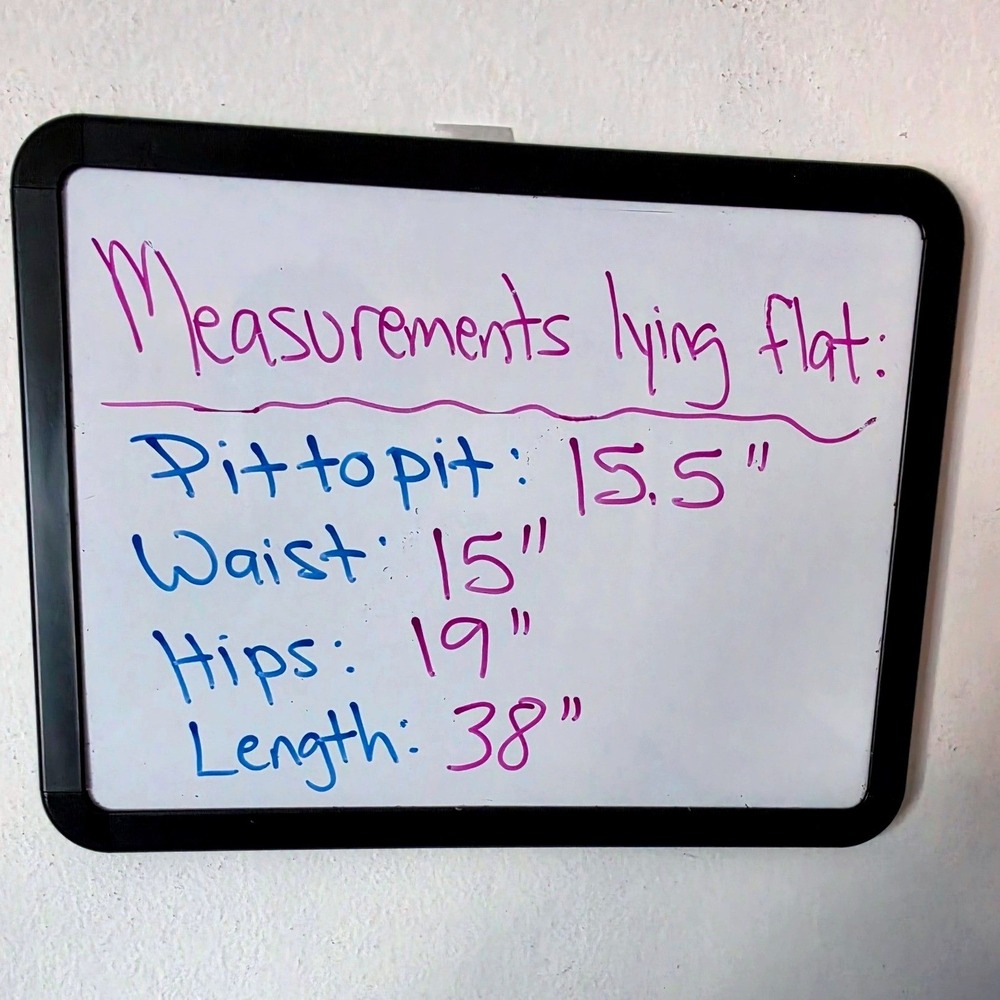 Measurements lying flat:
Pit to pit: 15.5"
Waist: 15"
Hips: 19"
Length: 38"